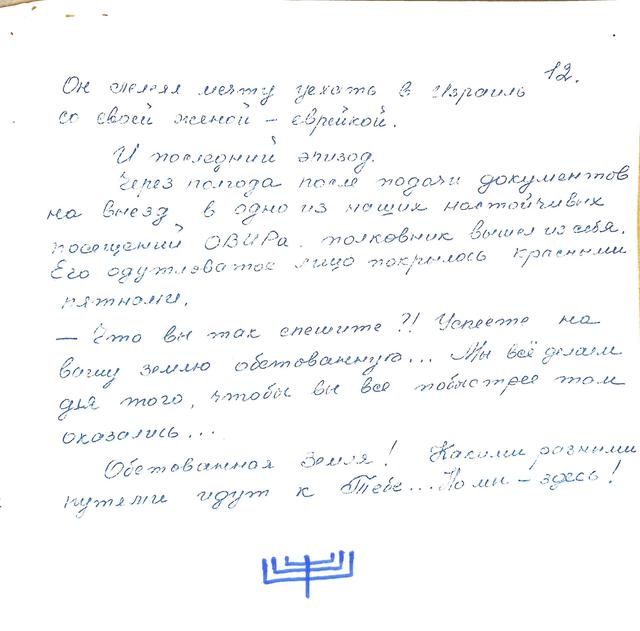 12.
Он лелеял мечту уехать в Израиль
со своей женой – еврейкой.
И последний эпизод.
Через полгода после подачи документов
на выезд в одно из наших настойчивых
посещений ОВИРа полковник вышел из себя.
Его одутловатое лицо покрылось красными
пятнами.
– Что вы так спешите?! Успеете на
вашу землю обетованную... Мы всё делаем
для того, чтобы вы все побыстрее там
оказались...
Обетованная Земля! Какими разными
путями идут к Тебе... Но мы – здесь!